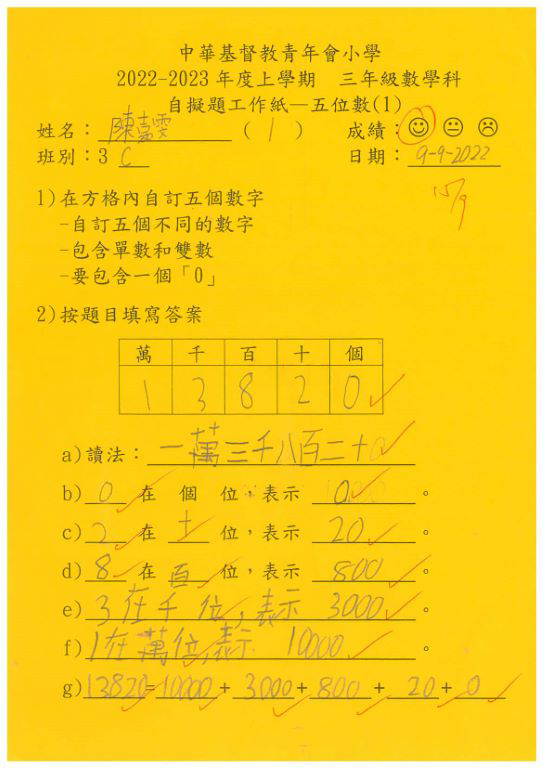 中華基督教青年會小學
2022-2023 年度上學期 三年級數學科
自擬題工作紙—五位數(1)
姓名：陳嘉雯 ( 1 ) 成績：
班別：3 C 日期：9-9-2022
15/9
1)在方格內自訂五個數字
-自訂五個不同的數字
-包含單數和雙數
-要包含一個「0」
2)按題目填寫答案
萬 千 百 十 個
1 3 8 2 0
a)讀法：一萬三千八百二十
b) 0 在 個 位，表示 0 。
c) 2 在 十 位，表示 20 。
d) 8 在 百 位，表示 800 。
e) 3在千位，表示 3000 。
f) 1在萬位，表示 10000 。
g) 13820=10000+3000+800+20+0